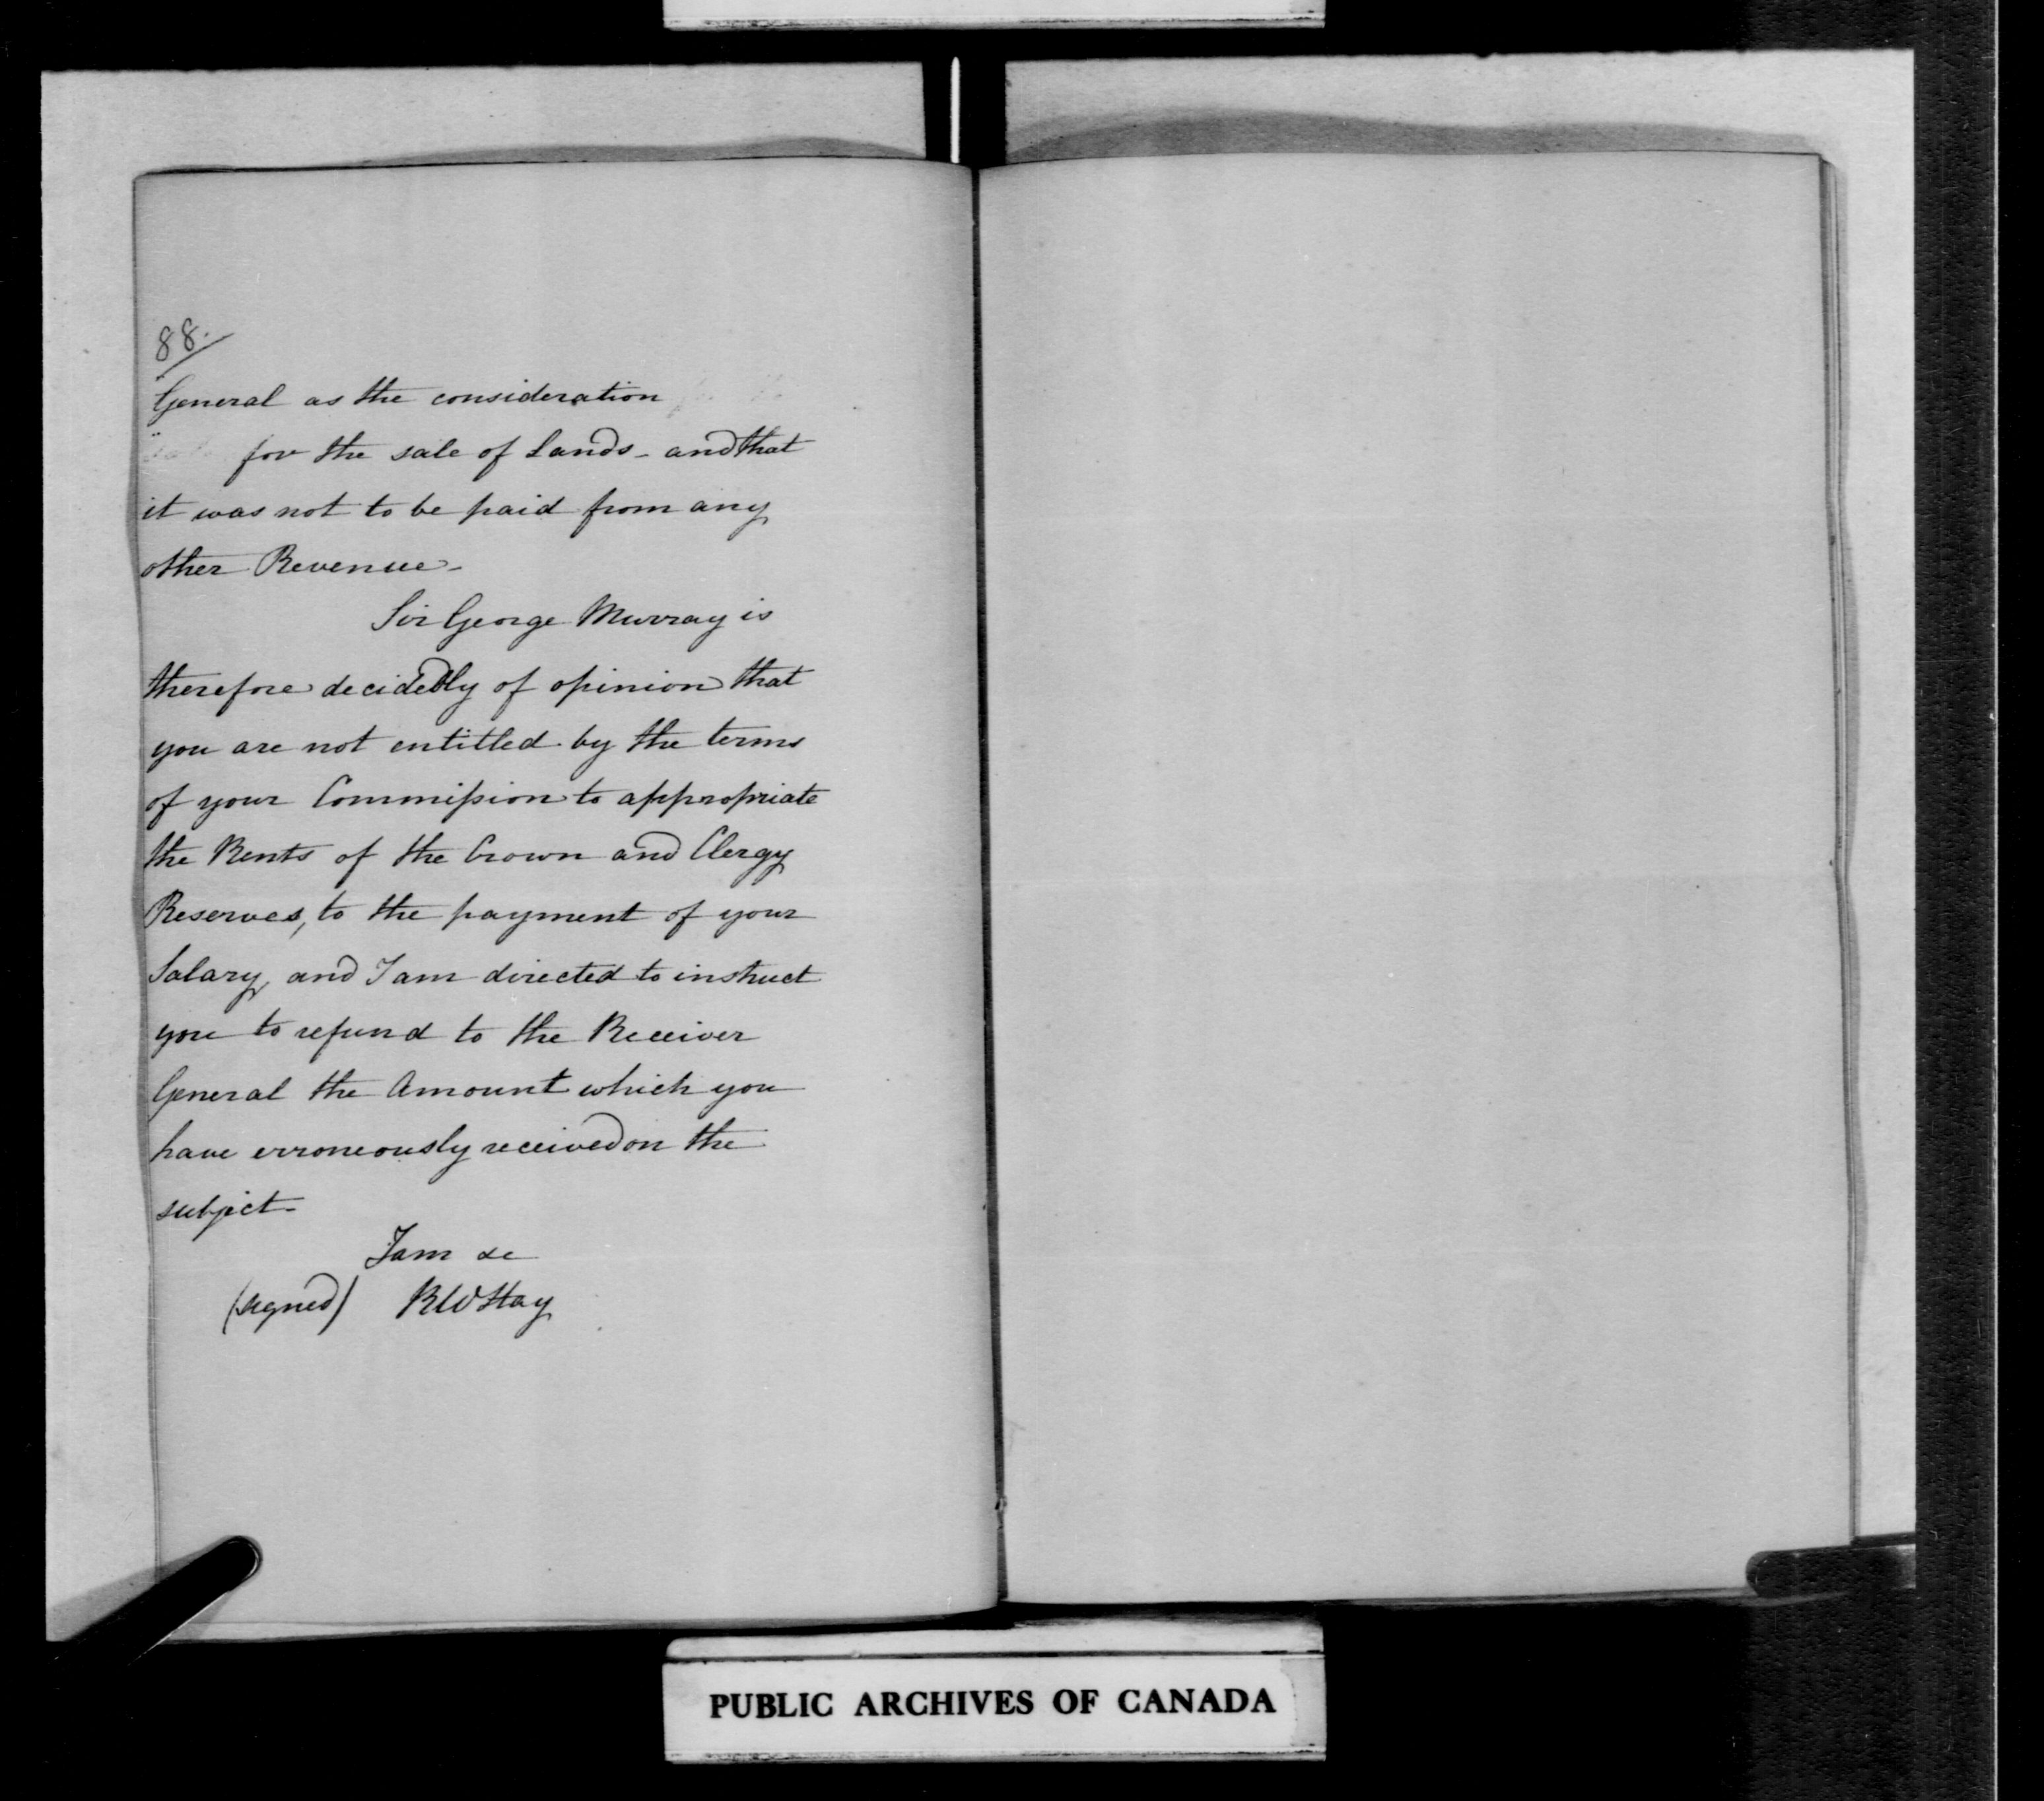 88.
"General as the consideration
" for the sale of Lands - and that
it was not to be paid from any
other Revenue -
Sir George Murray is
therefore decidedly of opinion that
you are not entitled by the terms
of your Commission to appropriate
the Rents of the Crown and Clergy
Reserves, to the payment of your
Salary, and I am directed to instruct
you to refund to the Receiver
General the Amount which you
have erroneously received on the
subject -
I am &c
(signed) RW Hay
PUBLIC ARCHIVES OF CANADA